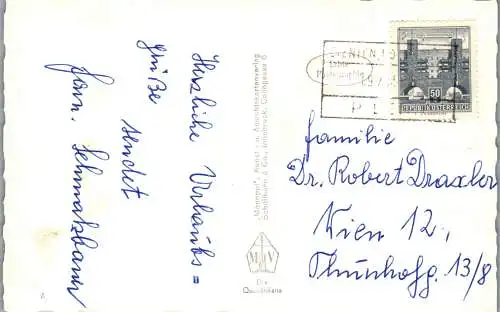 Herzliche Urlaubs=
grüße sendet
Fam. Schmalzbauer
"Monopol", Kunst- u. Ansichtskartenverlag
Schöllhorn & Co., Innsbruck,
MV
Die
50
REPUBLIK ÖSTERREICH
Familie
Dr. Robert Draxler
Wien 12,
Thunhofg. 13/8